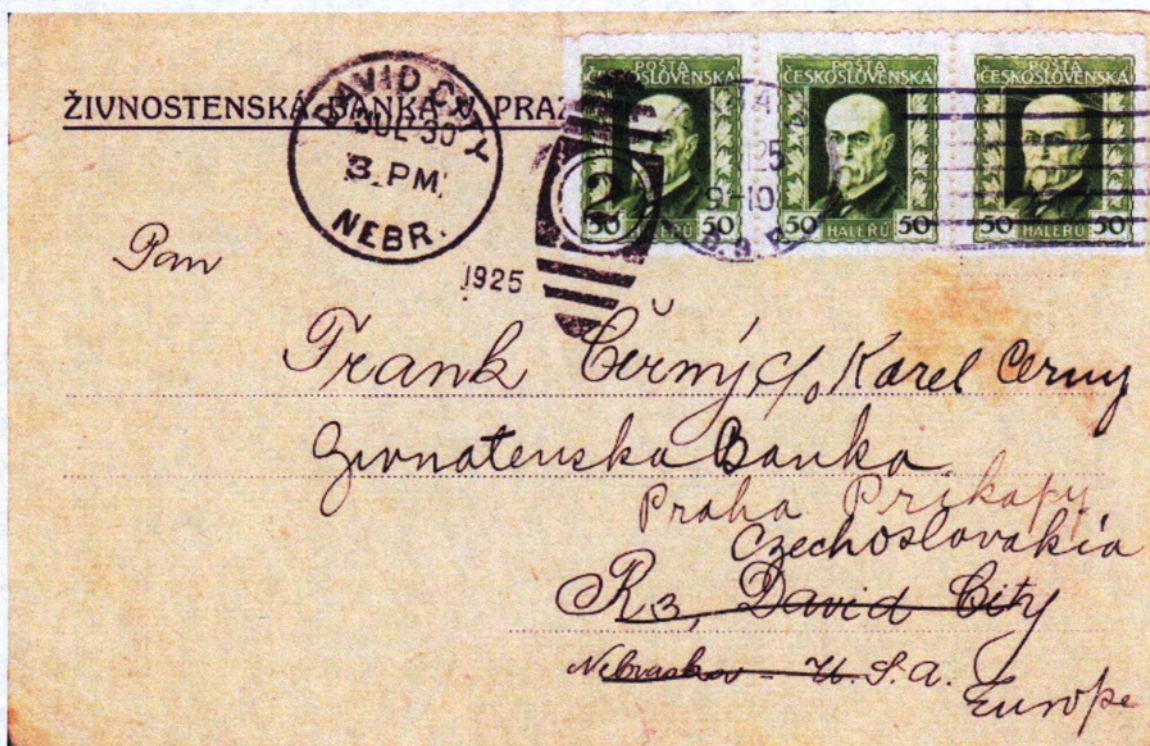 ŽIVNOSTENSKÁ BANKA V PRAZ
DAVID CITY
JUL 30
3 PM
NEBR.
1925
2
POŠTA
ČESKOSLOVENSKÁ
50 HALÉŘŮ 50
POŠTA
ČESKOSLOVENSKÁ
50 HALÉŘŮ 50
POŠTA
ČESKOSLOVENSKÁ
50 HALÉŘŮ 50
25
9-10
Pan
Frank Černý c/o Karel Cerny
Zivnatenska Banka
Praha Prikapy
Czechoslovakia
R3, David City
Nebraska - U.S.A.
Europe